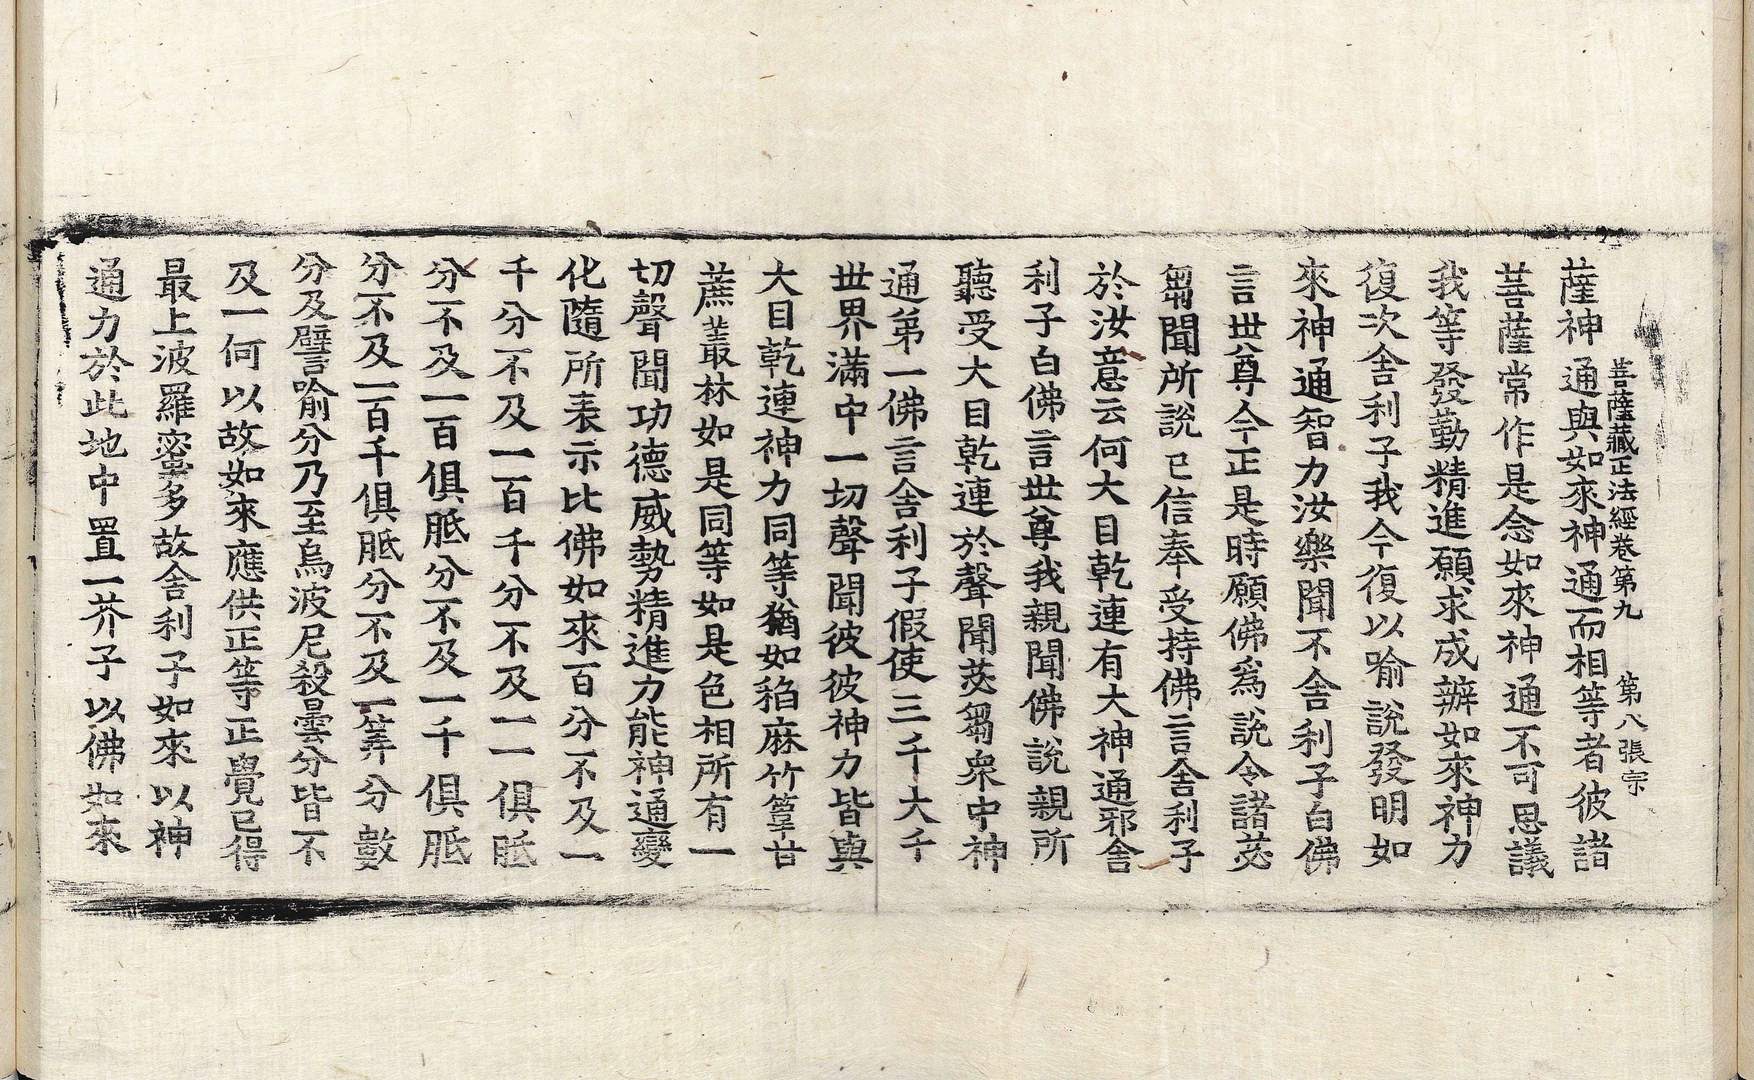 菩薩藏正法經卷第九　第八張宗
薩神通與如來神通而相等者彼諸
菩薩常作是念如來神通不可思議
我等發勤精進願求成辦如來神力
復次舍利子我今復以喻說發明如
來神通智力汝樂聞不舍利子白佛
言世尊今正是時願佛爲說令諸苾
芻聞所說已信奉受持佛言舍利子
於汝意云何大目乾連有大神通邪舍
利子白佛言世尊我親聞佛說親所
聽受大目乾連於聲聞苾芻衆中神
通第一佛言舍利子假使三千大千
世界滿中一切聲聞彼彼神力皆與
大目乾連神力同等猶如稻麻竹䓬甘
蔗叢林如是同等如是色相所有一
切聲聞功德威勢精進力能神通變
化隨所表示比佛如來百分不及一
千分不及一百千分不及一一俱胝
分不及一百俱胝分不及一千俱胝
分不及一百千俱胝分不及一筭分數
分及譬喻分乃至烏波尼殺曇分皆不
及一何以故如來應供正等正覺已得
最上波羅蜜多故舍利子如來以神
通力於此地中置一芥子以佛如來